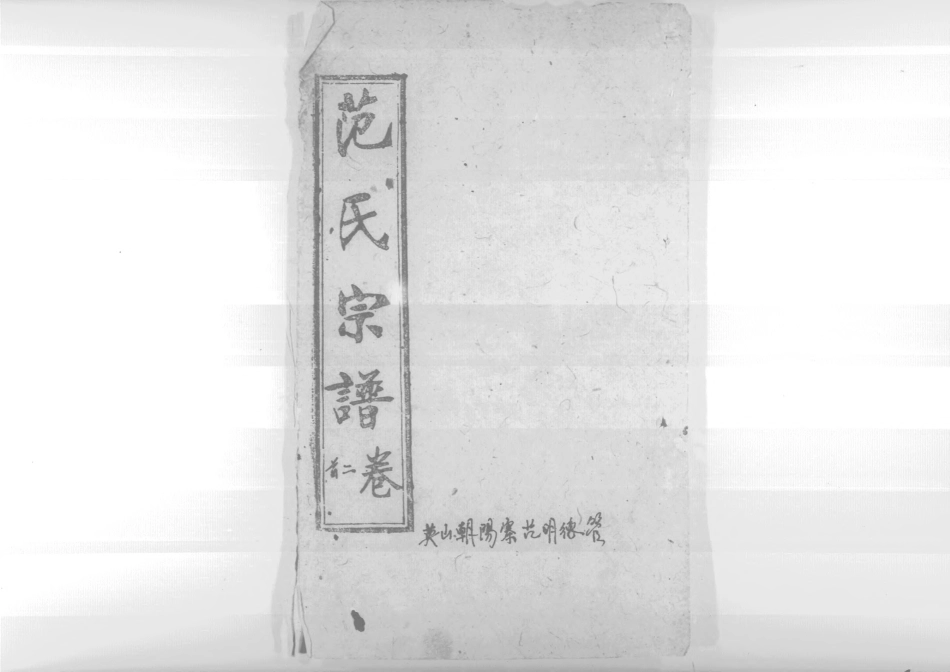 范氏宗譜卷
首二
英山朝陽寨范明德管